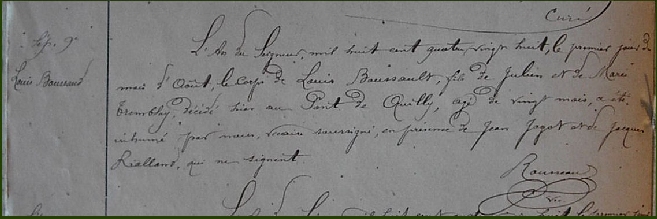 Curé
Sép. 9e
Louis Boussaud
L'An du Seigneur, mil huit cent quatre vingt huit, le premier jour du
mois d'Août, le corps de Louis Boussault, fils de Julien et de Marie
Tremblay, décédé hier au Pont de Quilly, agé de vingt mois, a été
inhumé par nous, vicaire soussigné, en présence de Jean Jagot et de Jacques
Rialland, qui ne signent
Rousseau
vic.